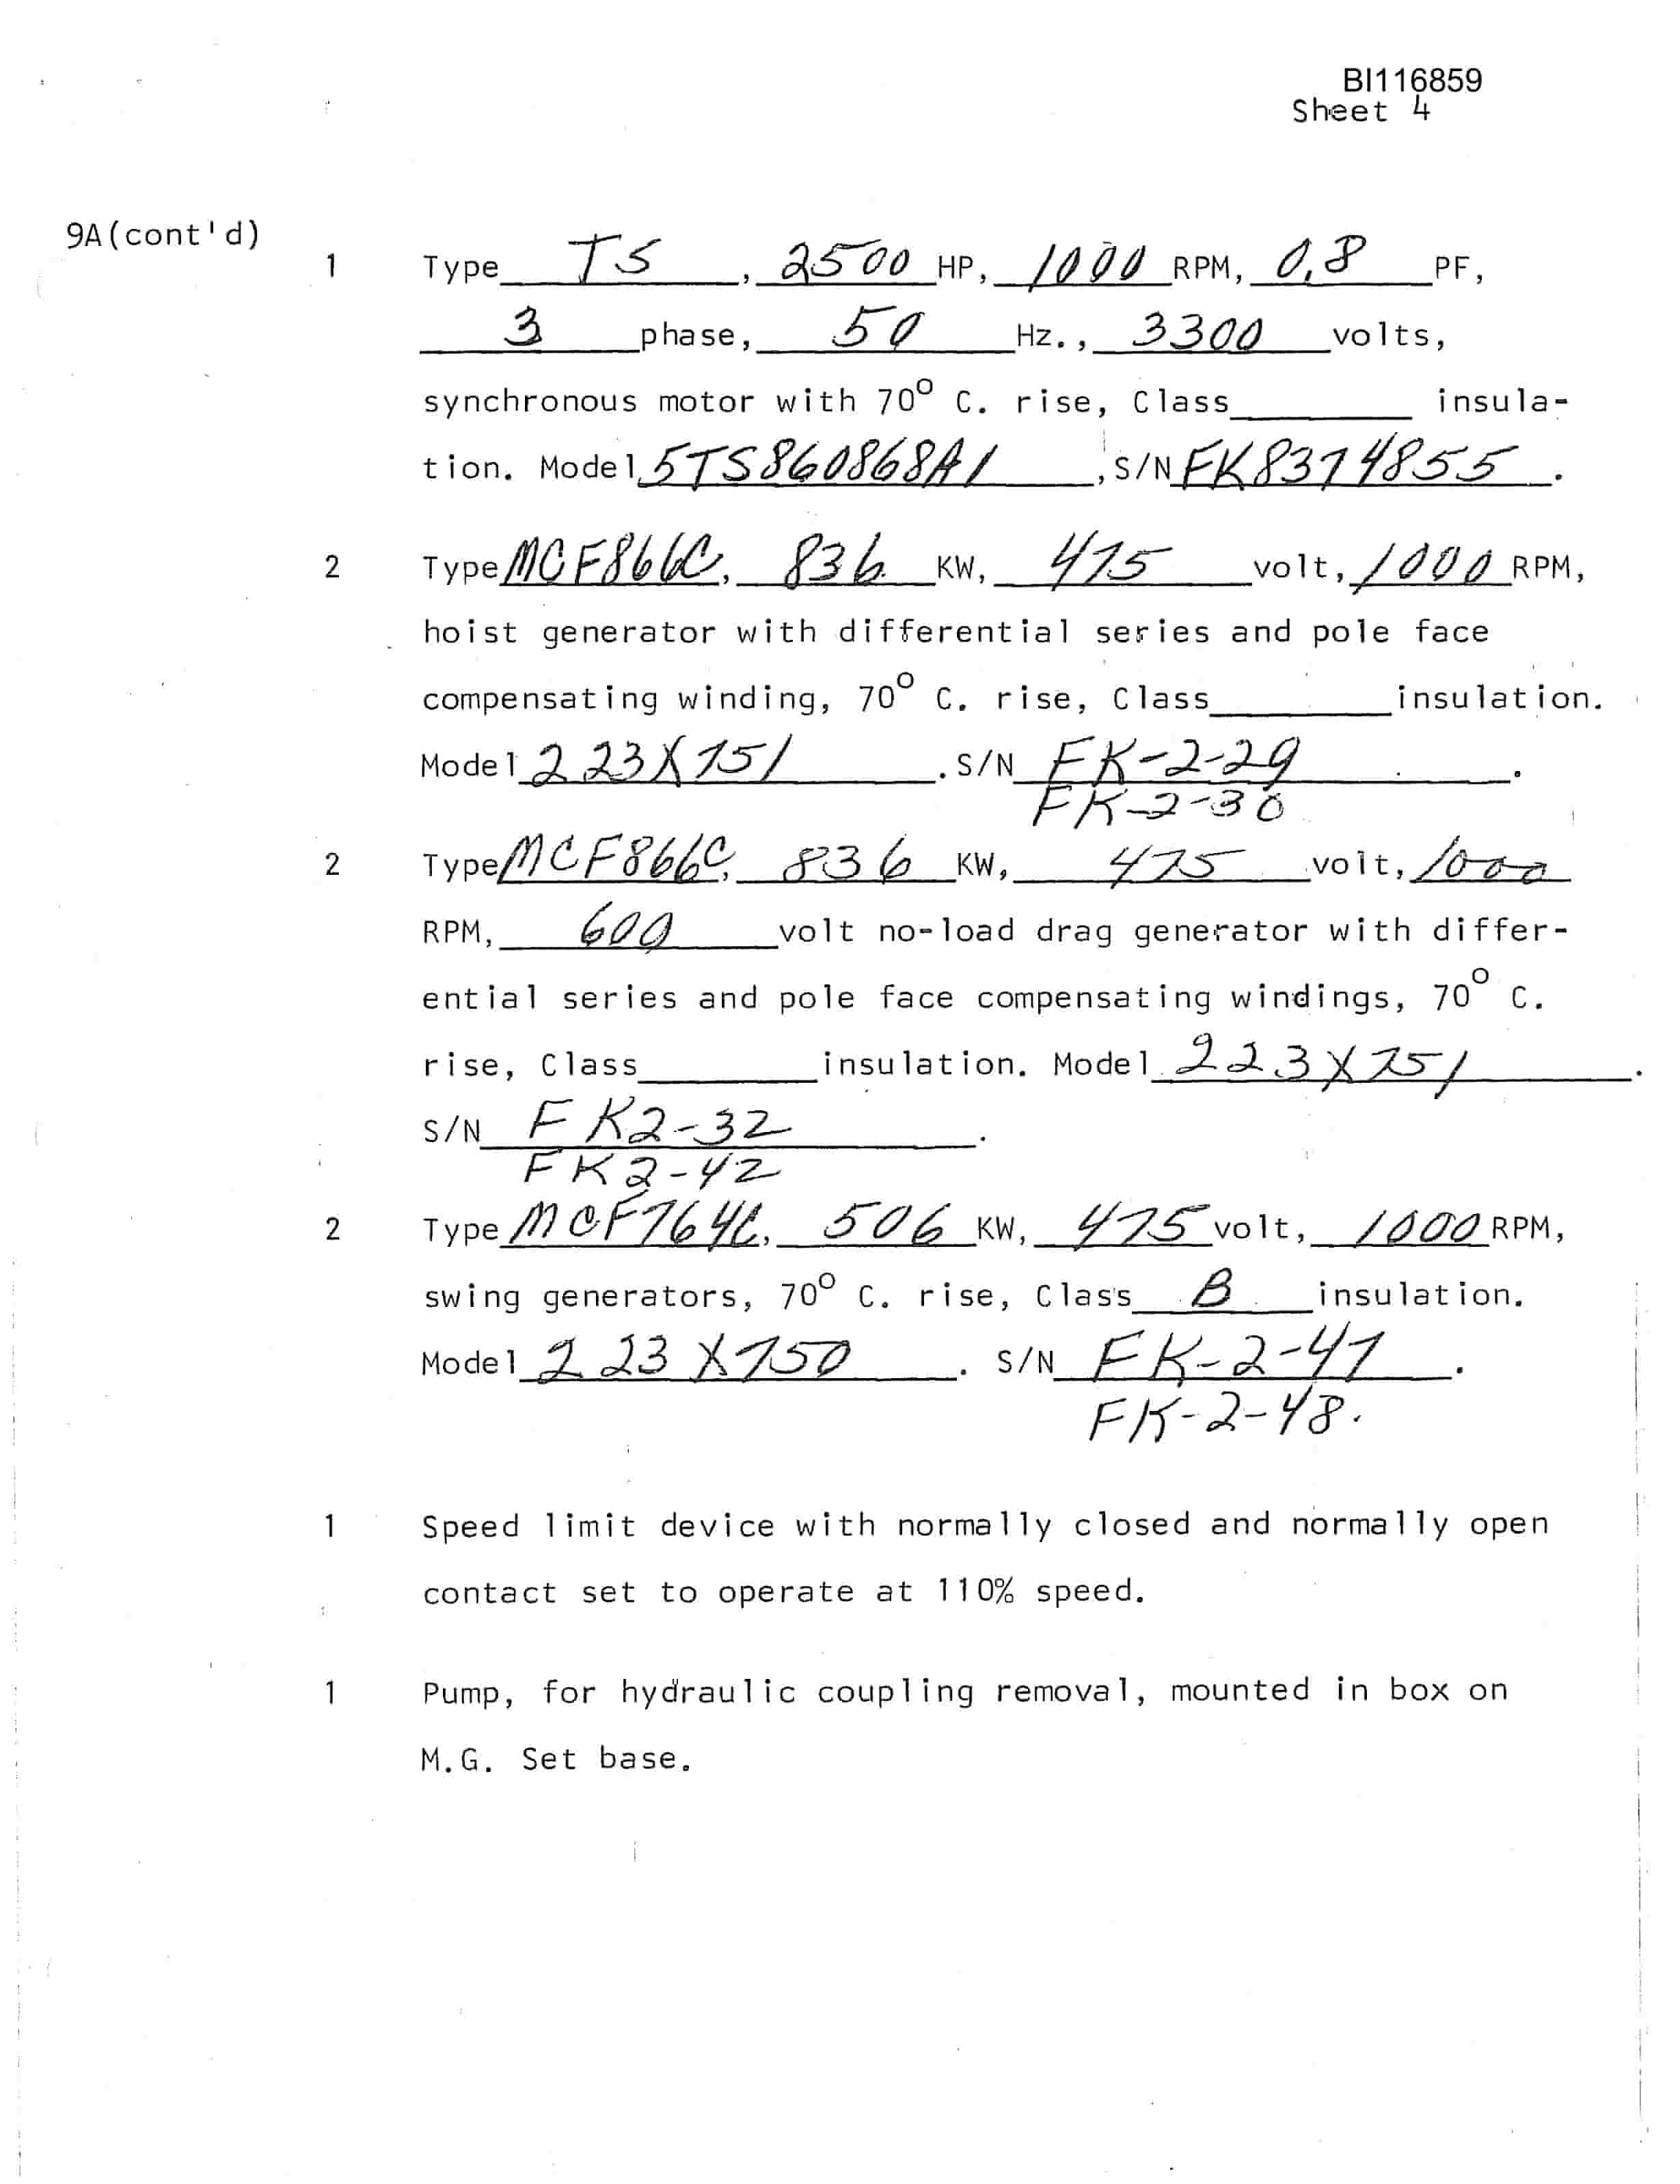 BI116859
Sheet 4
9A(cont'd)
1 Type TS, 2500 HP, 1000 RPM, 0.8 PF,
3 phase, 50 Hz., 3300 volts,
synchronous motor with 70° C. rise, Class________ insula-
tion. Model 5TS860868A1, S/N FK8374855.
2 Type MCF866C, 836 KW, 475 volt, 1000 RPM,
hoist generator with differential series and pole face
compensating winding, 70° C. rise, Class________insulation.
Model 223X751. S/N FK-2-29.
FK-2-30
2 Type MCF866C, 836 KW, 475 volt, 1000
RPM, 600 volt no-load drag generator with differ-
ential series and pole face compensating windings, 70° C.
rise, Class________insulation. Model 223X751.
S/N FK2-32.
FK2-42
2 Type MCF764C, 506 KW, 475 volt, 1000 RPM,
swing generators, 70° C. rise, Class B insulation.
Model 223X750. S/N FK-2-47.
FK-2-48.
1 Speed limit device with normally closed and normally open
contact set to operate at 110% speed.
1 Pump, for hydraulic coupling removal, mounted in box on
M.G. Set base.